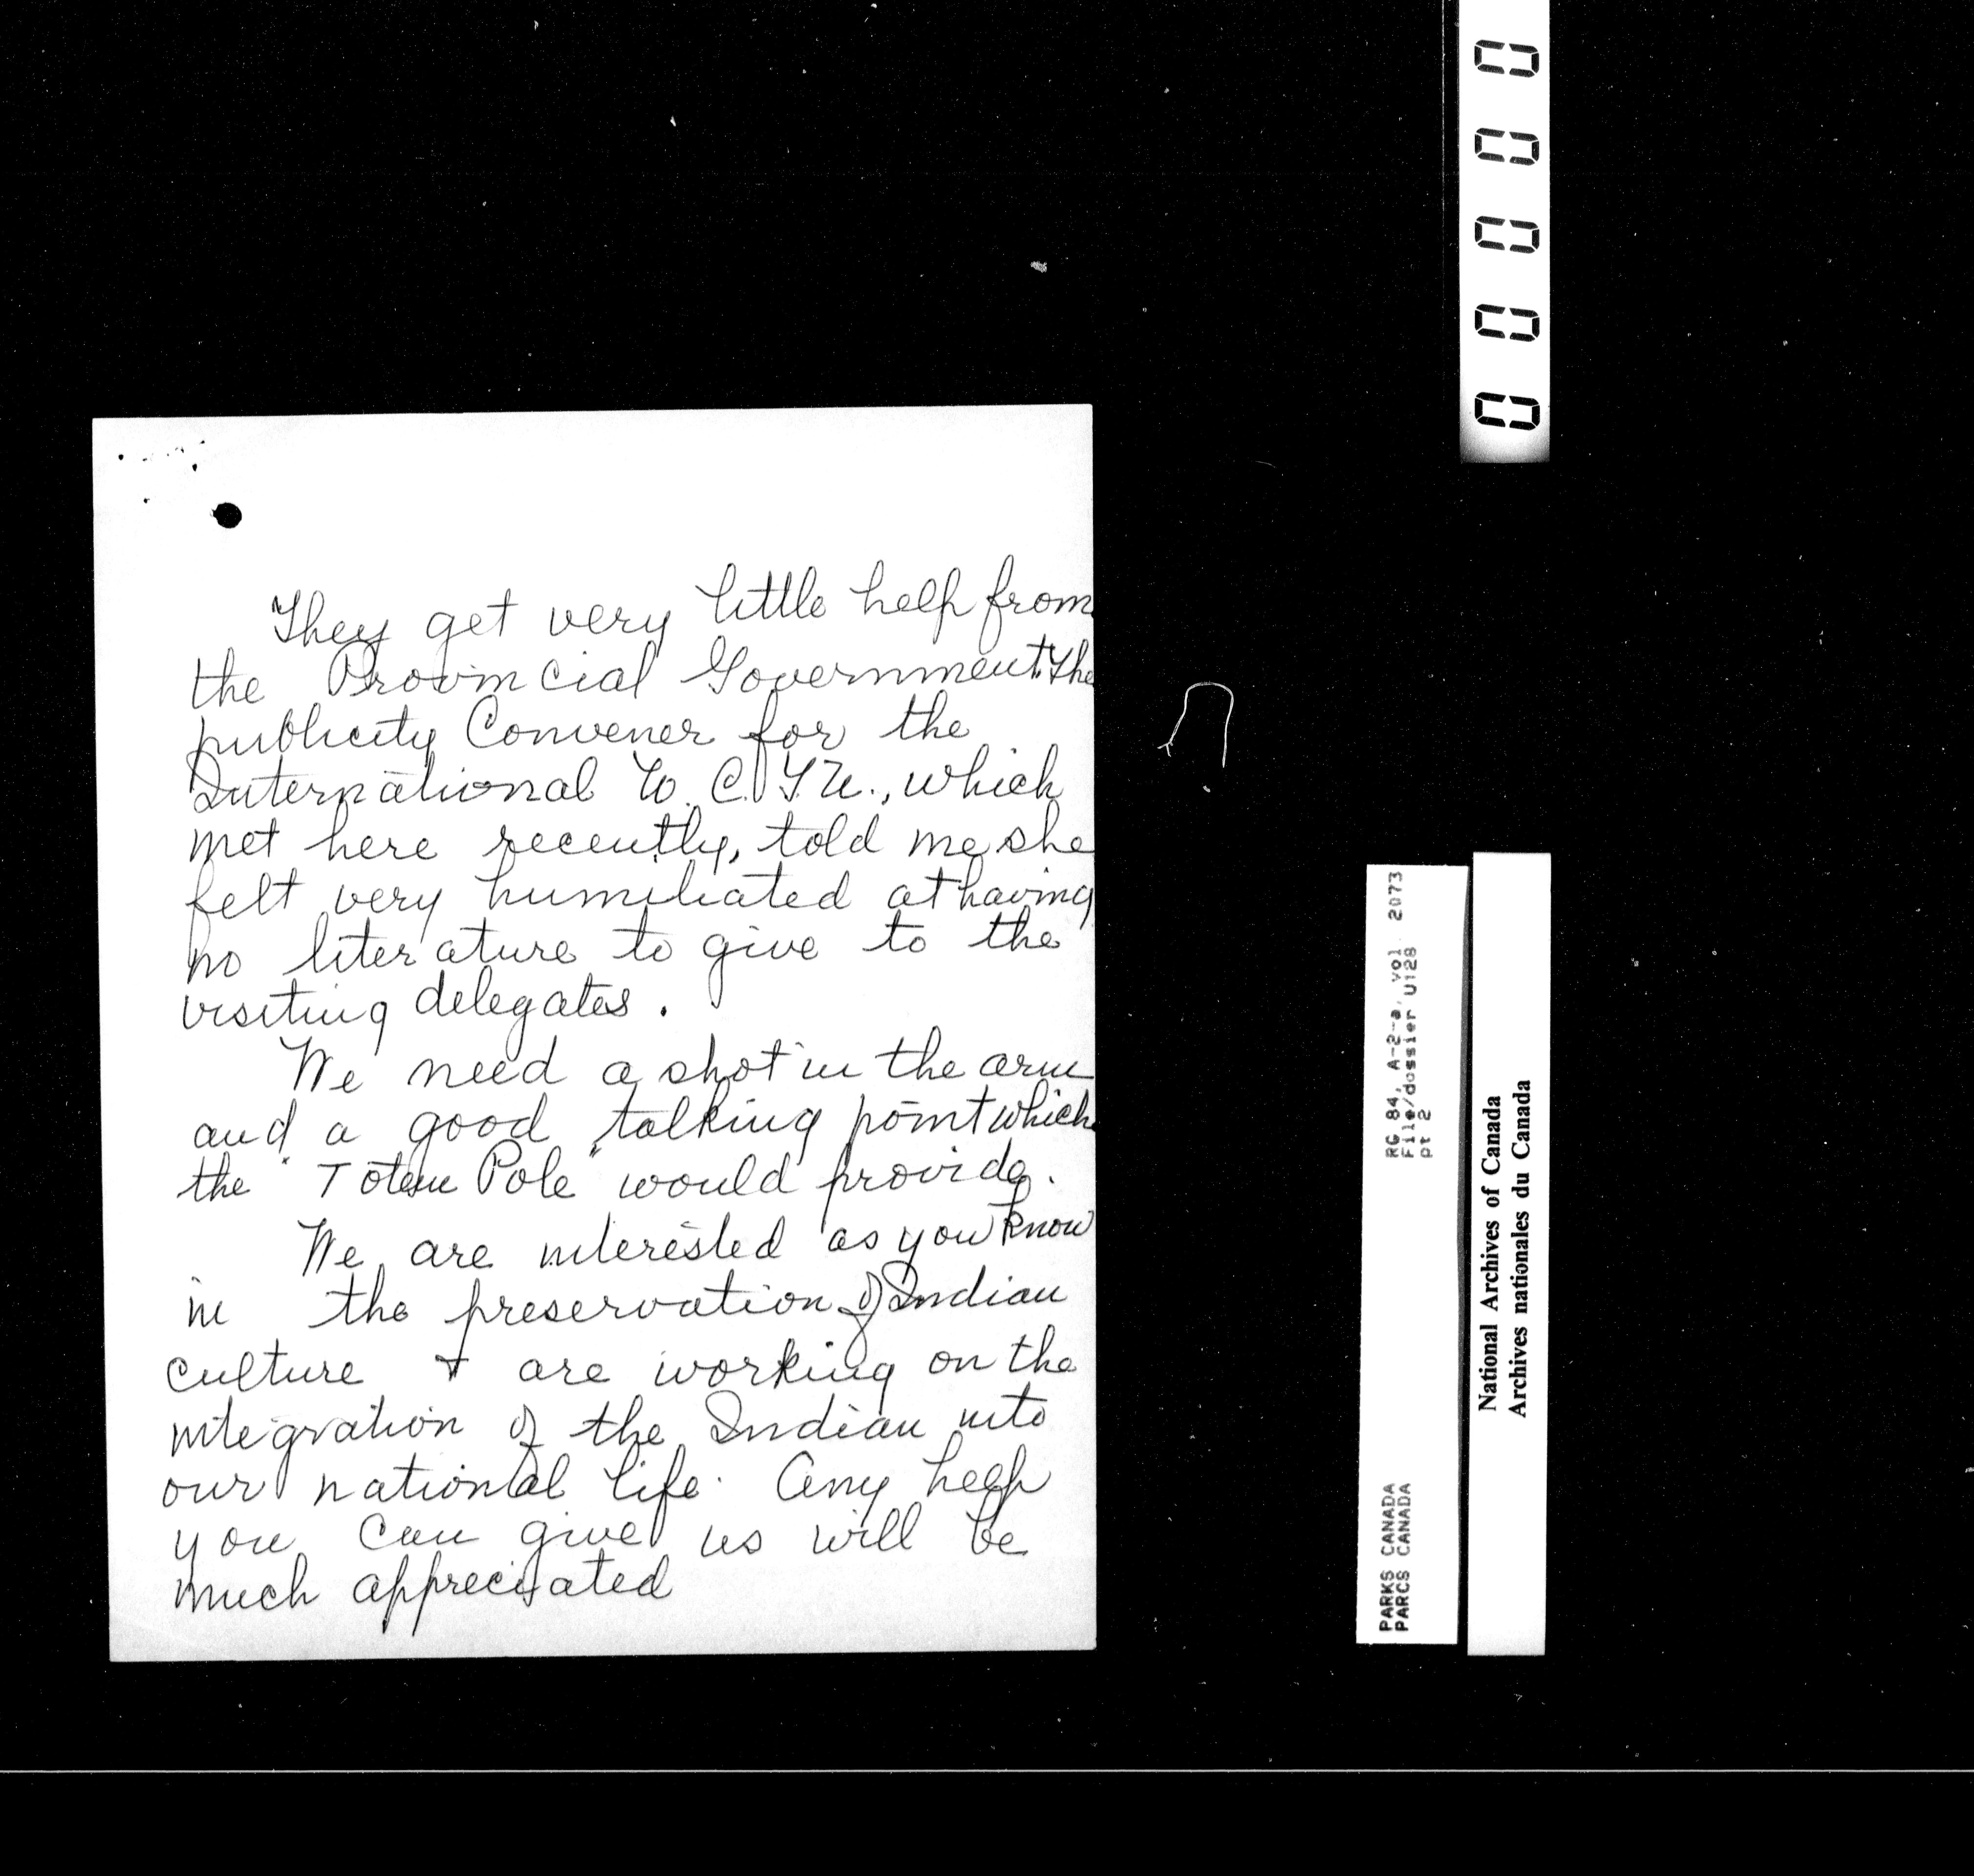 They get very little help from
the Provincial Government. The
publicity Convener for the
International W. C. T. U., which
met here recently, told me she
felt very humiliated at having
no literature to give to the
visiting delegates.
We need a shot in the arm
and a good talking point which
the "Totem Pole" would provide.
We are interested as you know
in the preservation of Indian
culture & are working on the
integration of the Indian into
our national life. Any help
you can give us will be
much appreciated
00000
RG 84, A-2-a, vol 2073
File/dossier U128
pt 2
PARKS CANADA
PARCS CANADA
National Archives of Canada
Archives nationales du Canada